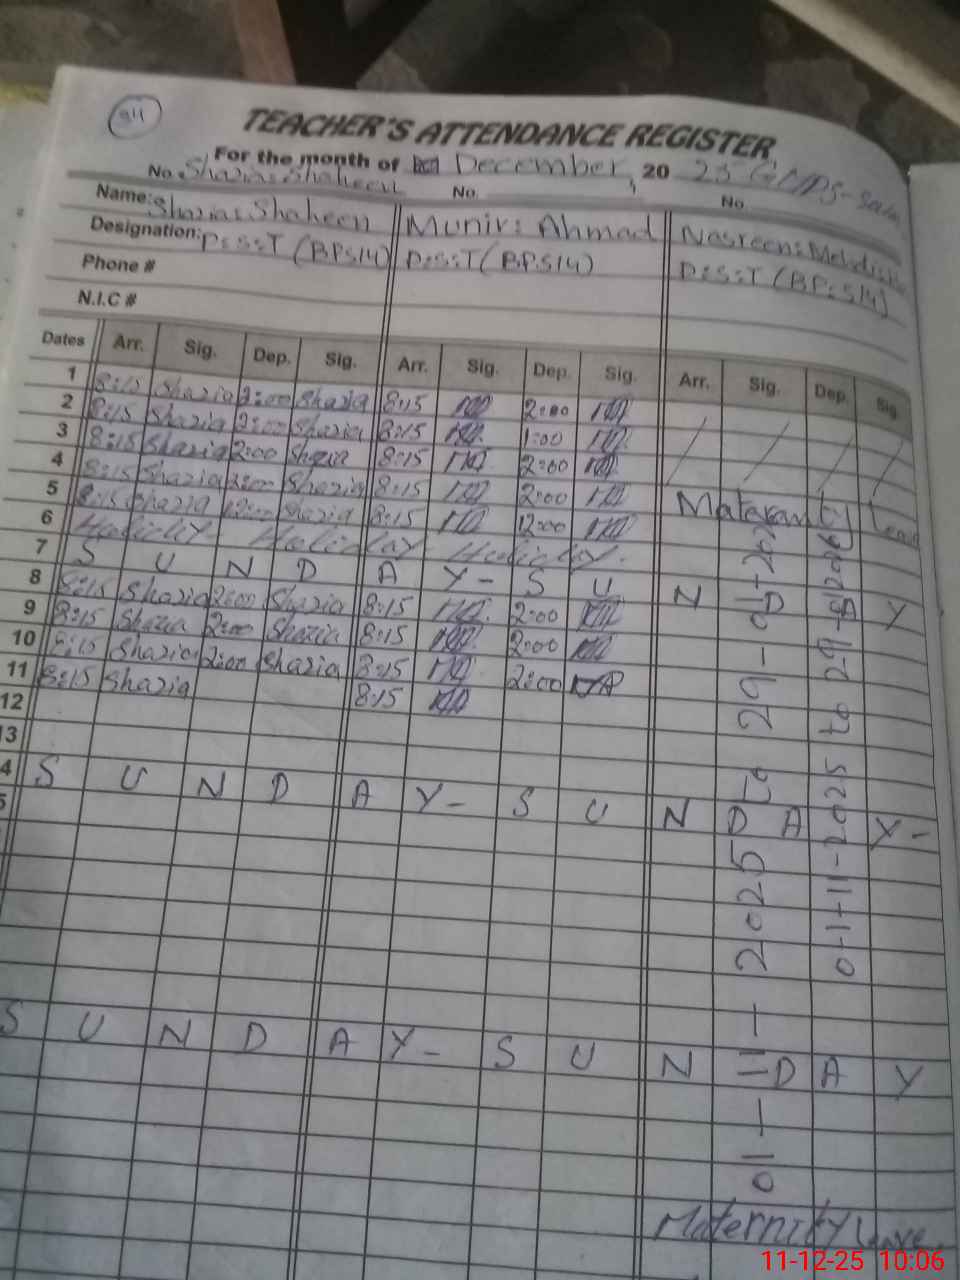 94
TEACHER'S ATTENDANCE REGISTER
For the month of December, 20 25 GMPS-
No. Shazia Shaheen No. No
Name: Shazia: Shaheen Munir: Ahmad Nasreen:
Designation: P:S:S:T (BPS14) P:S:S:T (BPS14) P:S:S:T (BP:S14)
Phone #
N.I.C #
Dates Arr. Sig. Dep. Sig. Arr. Sig. Dep. Sig. Arr. Sig. Dep. Sig
1 8:15 Shazia 2:00 Shazia 8:15 2:00
2 8:15 Shazia 2:00 Shazia 8:15 1:00
3 8:15 Shazia 2:00 Shazia 8:15 2:00
4 8:15 Shazia 2:00 Shazia 8:15 2:00
5 8:15 Shazia 12:00 Shazia 8:15 12:00
6 Holiday Holiday Holiday.
7 S U N D A Y- S U N D A Y
8 8:15 Shazia 2:00 Shazia 8:15 2:00
9 8:15 Shazia 2:00 Shazia 8:15 2:00
10 8:15 Shazia 2:00 Shazia 8:15 2:00
11 8:15 Shazia 8:15
12
13
4 S U N D A Y- S U N D A Y-
5
S U N D A Y- S U N D A Y
01-11-2025 to 29-01-202
01-11-2025 to 29-01-2026
Maternity Leave
11-12-25 10:06